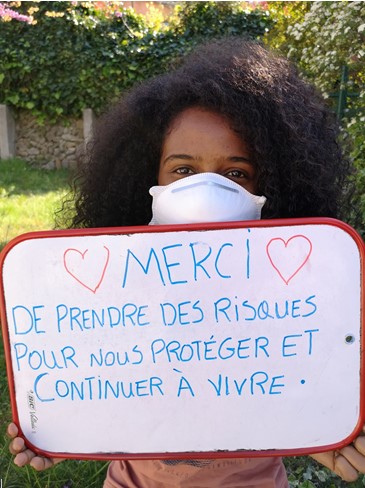 MERCI
DE PRENDRE DES RISQUES
POUR NOUS PROTÉGER ET
CONTINUER À VIVRE.